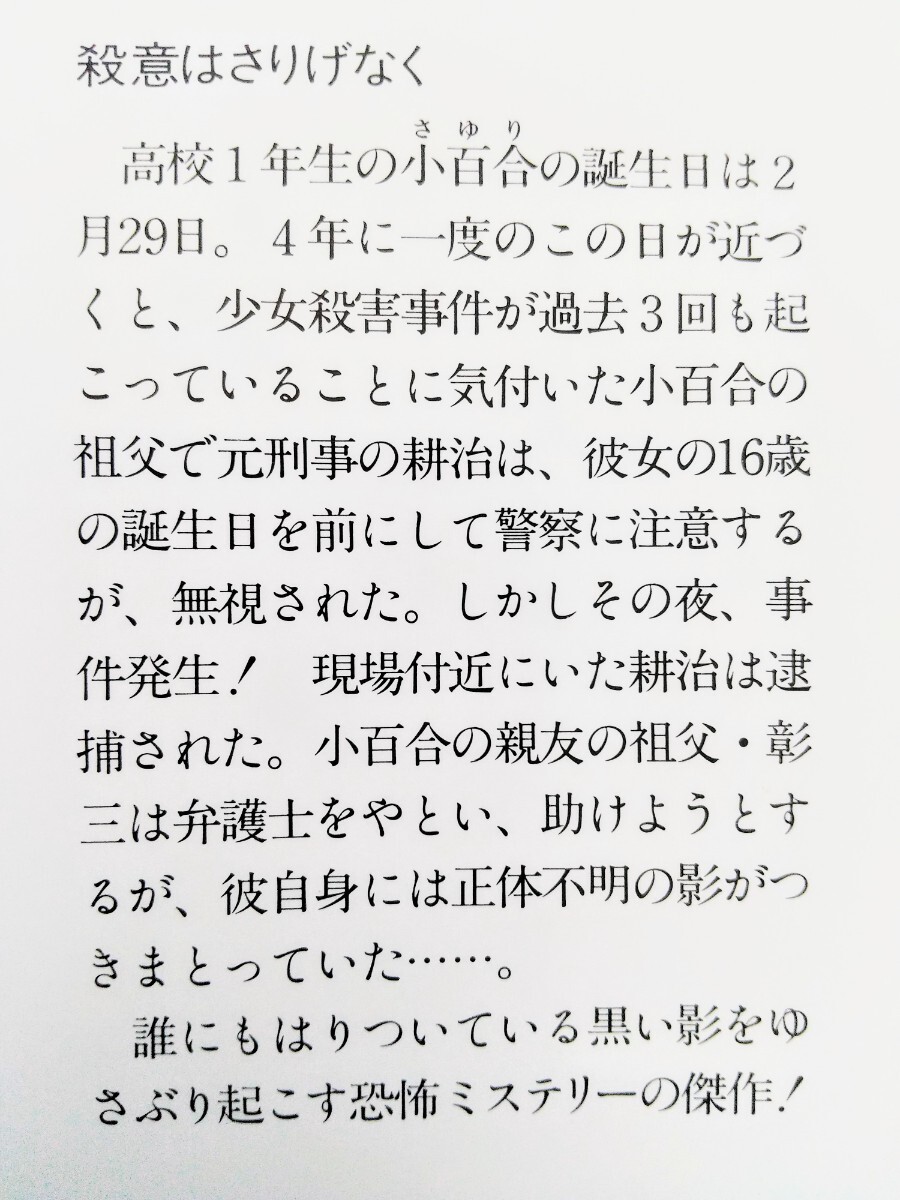 殺意はさりげなく
さゆり
高校1年生の小百合の誕生日は2
月29日。4年に一度のこの日が近づ
くと、少女殺害事件が過去3回も起
こっていることに気付いた小百合の
祖父で元刑事の耕治は、彼女の16歳
の誕生日を前にして警察に注意する
が、無視された。しかしその夜、事
件発生! 現場付近にいた耕治は逮
捕された。小百合の親友の祖父・彰
三は弁護士をやとい、助けようとす
るが、彼自身には正体不明の影がつ
きまとっていた……。
誰にもはりついている黒い影をゆ
さぶり起こす恐怖ミステリーの傑作!